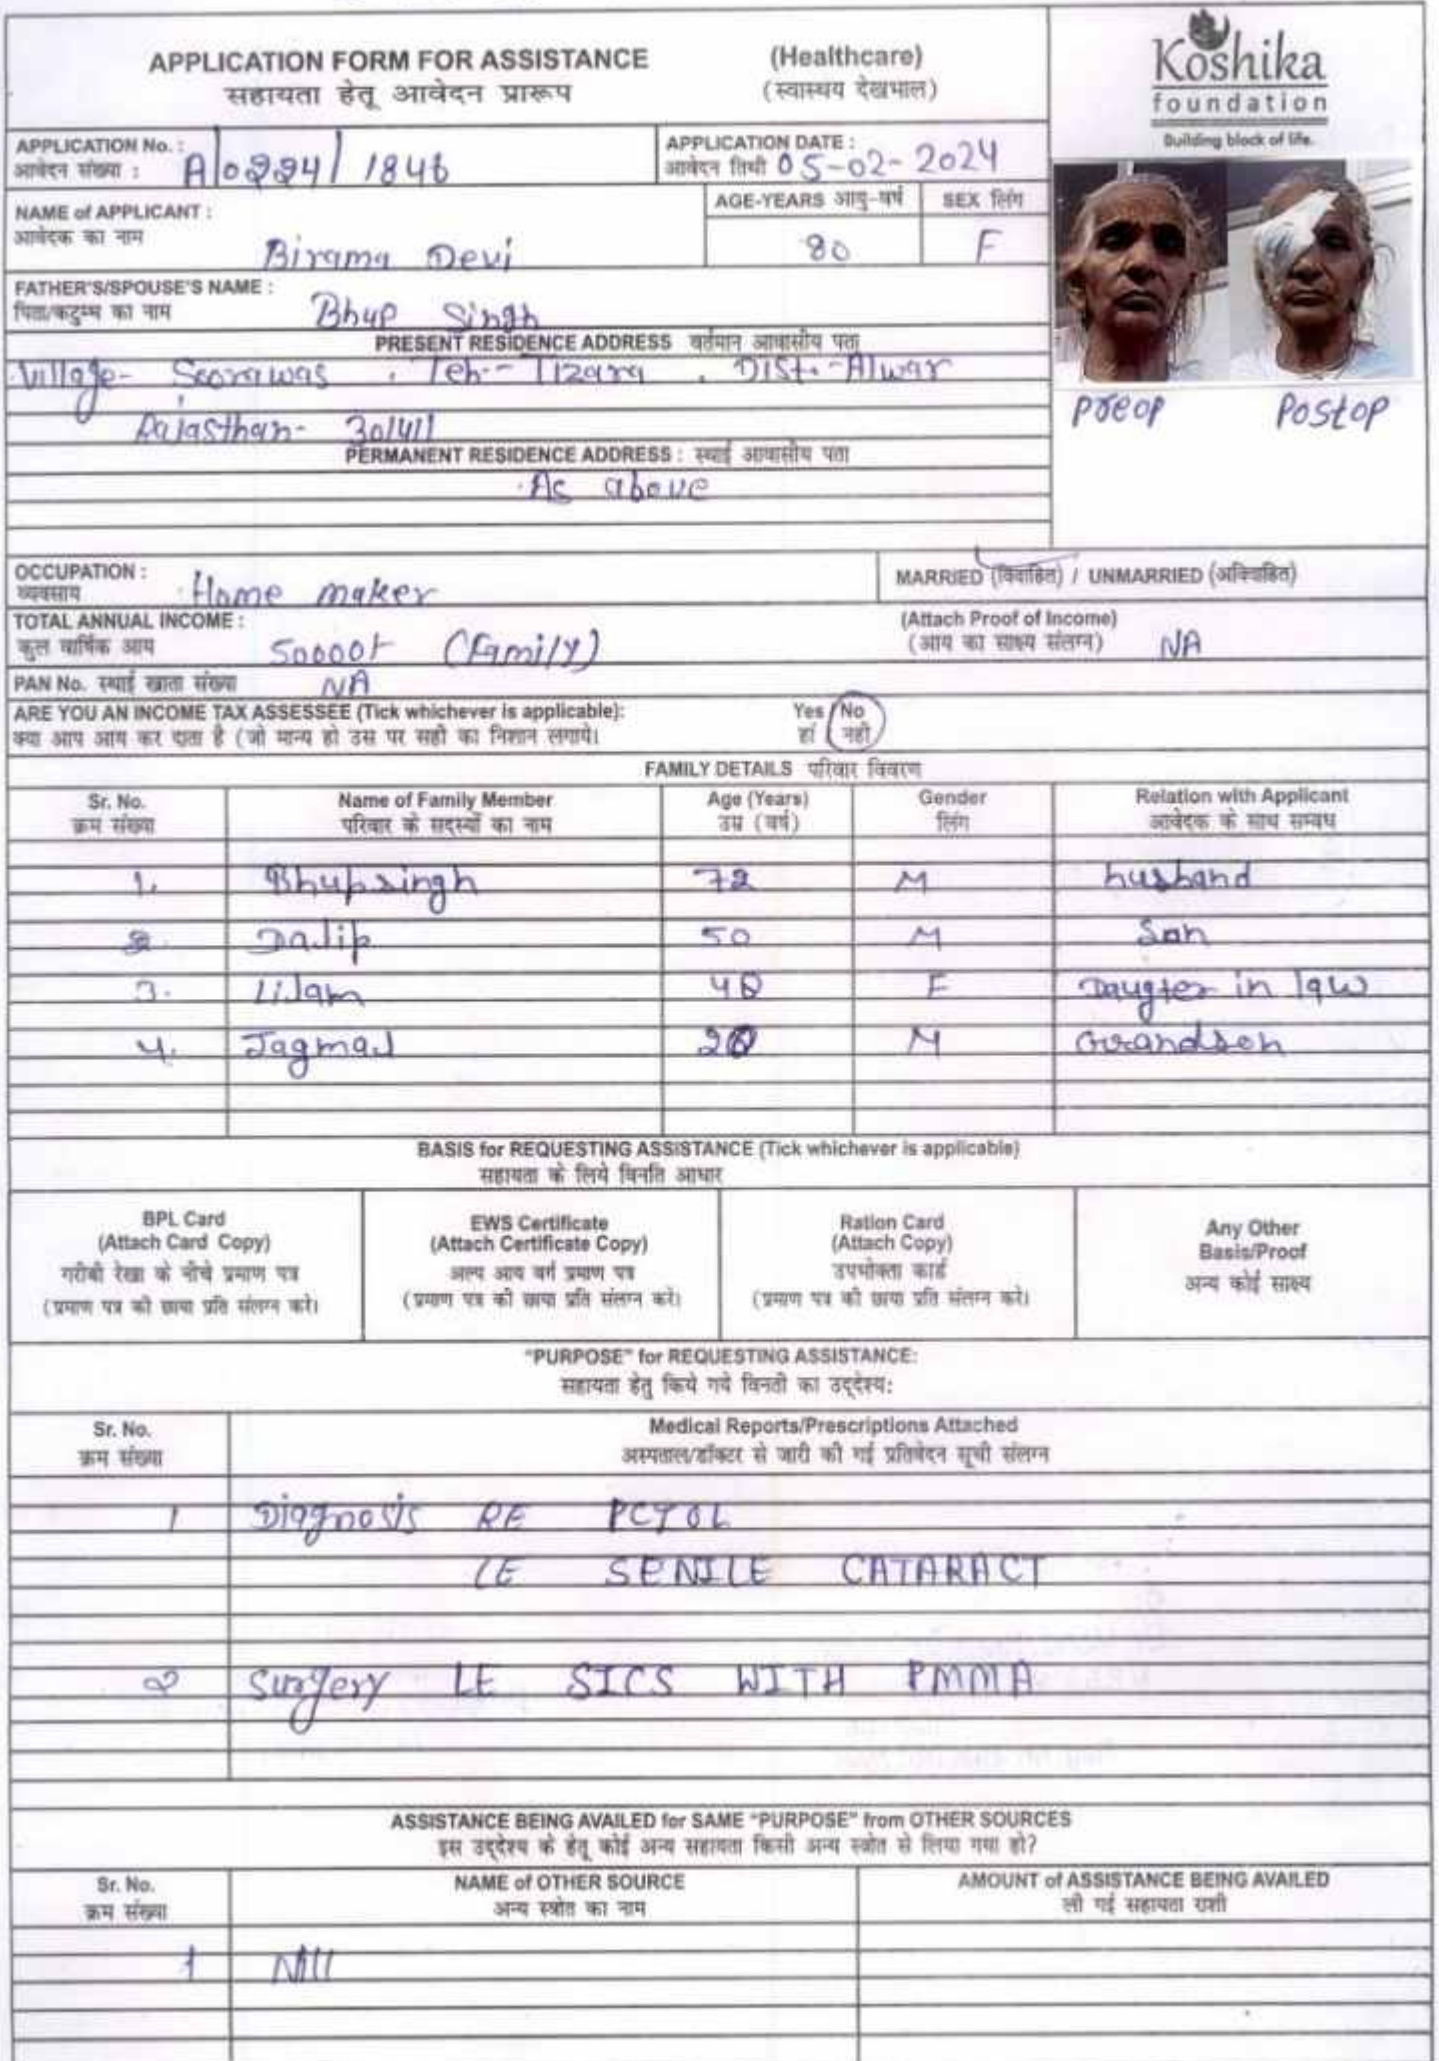 APPLICATION FORM FOR ASSISTANCE (Healthcare)
सहायता हेतू आवेदन प्रारूप (स्वास्थय देखभाल)
Koshika
foundation
Building block of life.
APPLICATION No. : A/0224/1846
आवेदन संख्या :
APPLICATION DATE :
आवेदन तिथी 05-02-2024
NAME of APPLICANT :
आवेदक का नाम Birama Devi
AGE-YEARS आयु-वर्ष 80
SEX लिंग F
FATHER'S/SPOUSE'S NAME :
पिता/कटुम्ब का नाम Bhup Singh
PRESENT RESIDENCE ADDRESS वर्तमान आवासीय पता
Village- Seorawas , Teh-- Tizara , DIST.-Alwar
Rajasthan- 301411
Preop Postop
PERMANENT RESIDENCE ADDRESS : स्थाई आवासीय पता
As above
OCCUPATION :
व्यवसाय Home maker
MARRIED (विवाहित) / UNMARRIED (अविवाहित)
TOTAL ANNUAL INCOME :
कुल वार्षिक आय 50000/- (Family)
(Attach Proof of Income)
(आय का साक्ष्य संलग्न) NA
PAN No. स्थाई खाता संख्या NA
ARE YOU AN INCOME TAX ASSESSEE (Tick whichever is applicable): Yes No
क्या आप आय कर दाता है (जो मान्य हो उस पर सही का निशान लगाये। हां नहीं
FAMILY DETAILS परिवार विवरण
Sr. No. Name of Family Member Age (Years) Gender Relation with Applicant
क्रम संख्या परिवार के सदस्यों का नाम उम्र (वर्ष) लिंग आवेदक के साथ सम्बध
1. Bhupsingh 72 M husband
2. Dalip 50 M Son
3. Lilam F Daugter in law
4. Jagmal M Grandson
BASIS for REQUESTING ASSISTANCE (Tick whichever is applicable)
सहायता के लिये विनति आधार
BPL Card
(Attach Card Copy)
गरीबी रेखा के नीचे प्रमाण पत्र
(प्रमाण पत्र की छाया प्रति संलग्न करे।
EWS Certificate
(Attach Certificate Copy)
अल्प आय वर्ग प्रमाण पत्र
(प्रमाण पत्र की छाया प्रति संलग्न करे।
Ration Card
(Attach Copy)
उपभोक्ता कार्ड
(प्रमाण पत्र की छाया प्रति संलग्न करे।
Any Other
Basis/Proof
अन्य कोई साक्ष्य
"PURPOSE" for REQUESTING ASSISTANCE:
सहायता हेतु किये गये विनती का उद्देश्य:
Sr. No. Medical Reports/Prescriptions Attached
क्रम संख्या अस्पताल/डॉक्टर से जारी की गई प्रतिवेदन सूची संलग्न
1 Diagnosis RE PCIOL
LE SENILE CATARACT
2 Surgery LE SICS WITH PMMA
ASSISTANCE BEING AVAILED for SAME "PURPOSE" from OTHER SOURCES
इस उद्देश्य के हेतू कोई अन्य सहायता किसी अन्य स्त्रोत से लिया गया हो?
Sr. No. NAME of OTHER SOURCE AMOUNT of ASSISTANCE BEING AVAILED
क्रम संख्या अन्य स्त्रोत का नाम ली गई सहायता राशी
1 Nill